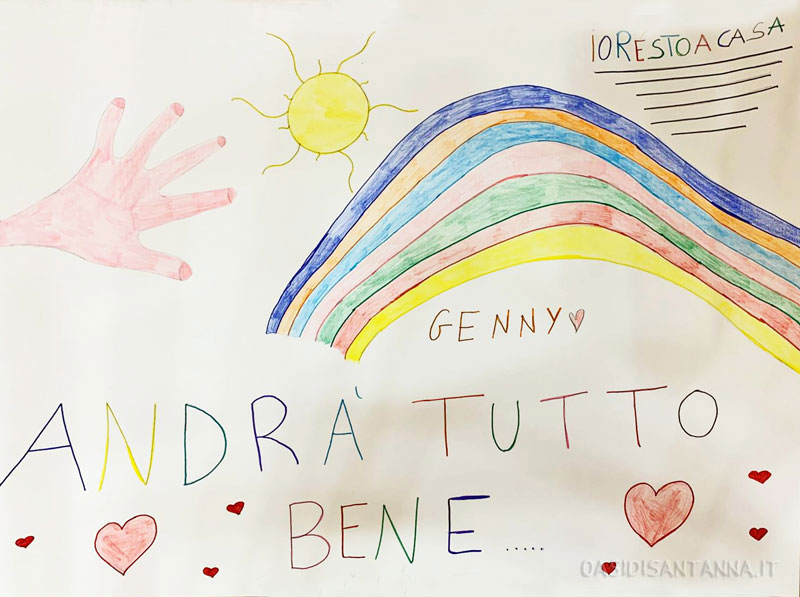 IORESTOACASA
GENNY
ANDRÀ TUTTO
BENE.....
OASIDISANTANNA.IT